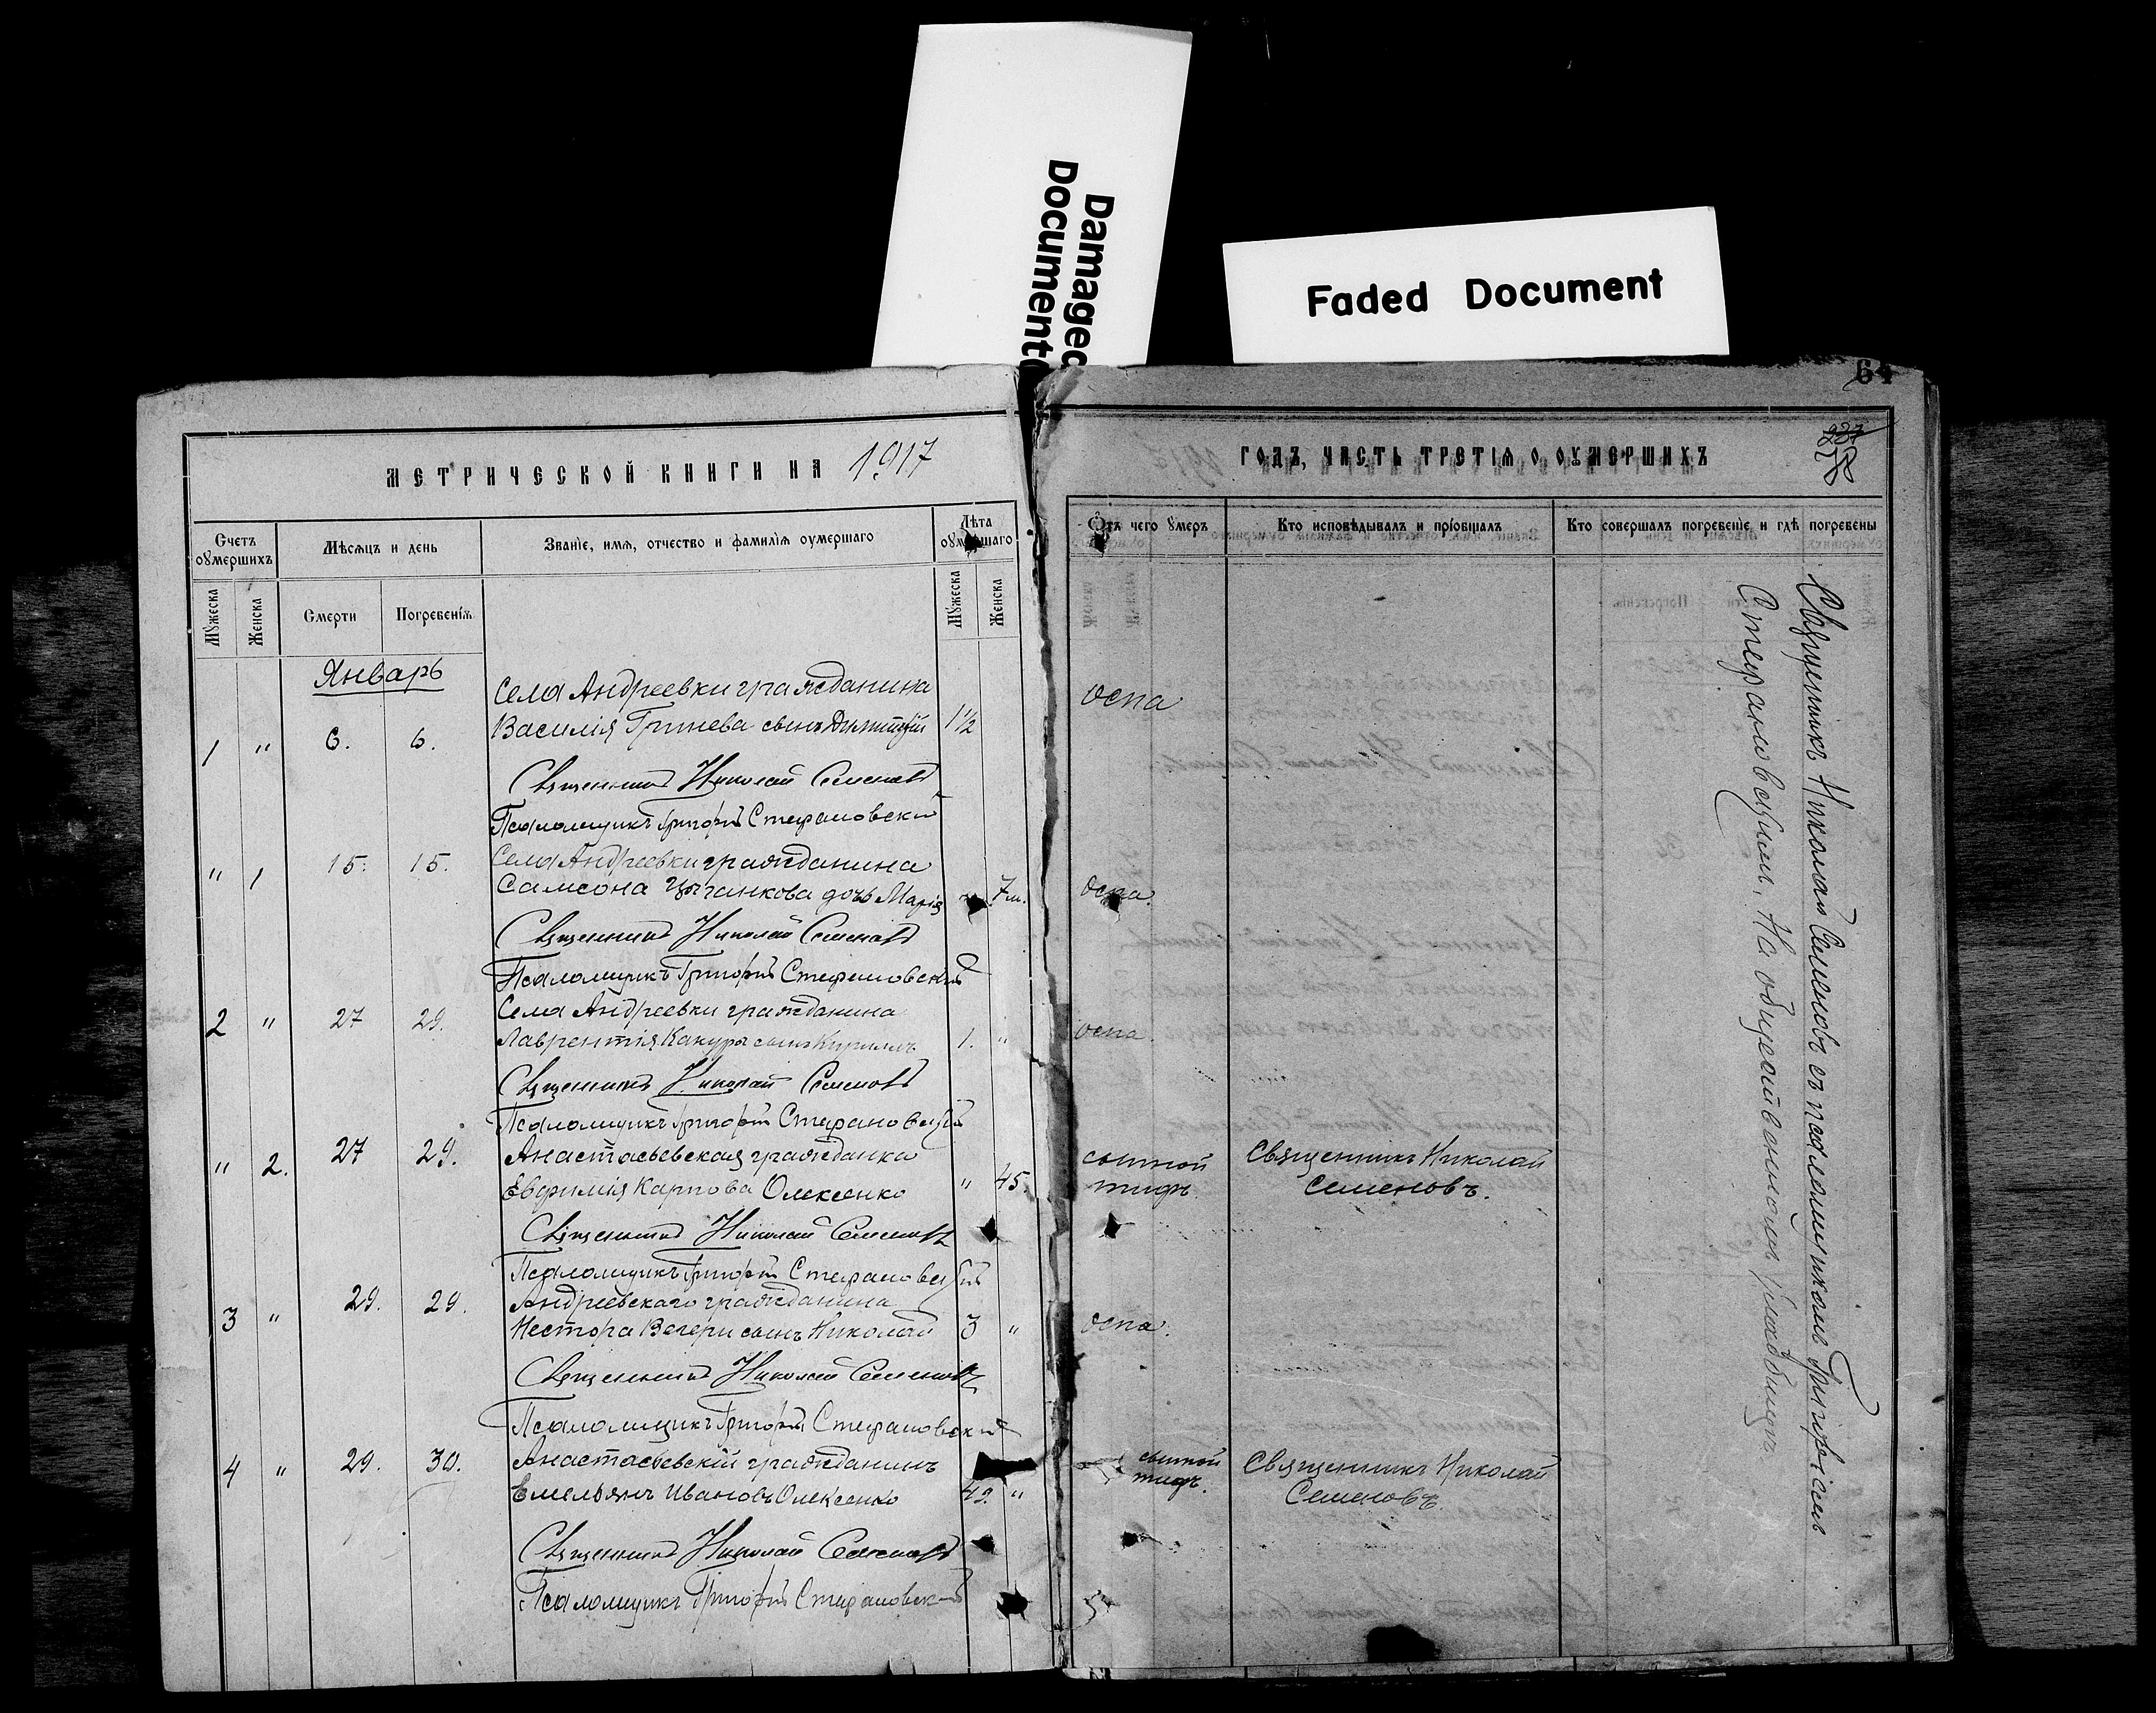 Damaged
Document
Faded Document
64
МЕТРИЧЕСКОЙ КНИГИ НА 1917
ГОДЪ, ЧАСТЬ ТРЕТІЯ О ОУМЕРШИХЪ
237
Счетъ оумершихъ
Мѣсяцъ и день
Званіе, имя, отчество и фамилія оумершаго
Лѣта оумершаго
Мужеска
Женска
Смерти
Погребенія
Мужеска
Женска
Отъ чего умеръ
Кто исповѣдывалъ и пріобщалъ
Кто совершалъ погребеніе и гдѣ погребены
Январь
Села Андреевки гражданина
1 " 6. 6. Василія Гринева сынъ Димитрій 1½ оспа
Священникъ Николай Семеновъ
Псаломщикъ Григорій Стефановскій
" 1 15. 15. Села Андреевки гражданина
Самсона Цыганкова дочь Марія 7 м. оспа.
Священникъ Николай Семеновъ
Псаломщикъ Григорій Стефановскій
2 " 27 29. Села Андреевки гражданина
Лаврентія Какуры сынъ Кириллъ 1. " оспа.
Священникъ Николай Семеновъ
Псаломщикъ Григорій Стефановскій
" 2. 27 29. Анастасьевская гражданка
Евфимія Карпова Олексенко " 45.
сыпной
тифъ.
Священникъ Николай
Семеновъ.
Священникъ Николай Семеновъ
Псаломщикъ Григорій Стефановскій
3 " 29. 29. Андреевскаго гражданина
Нестора Вечери сынъ Николай 3 " оспа.
Священникъ Николай Семеновъ
Псаломщикъ Григорій Стефановскій
4 " 29. 30. Анастасьевскій гражданинъ
Емельянъ Ивановъ Олексенко 49. "
сыпной
тифъ.
Священникъ Николай
Семеновъ.
Священникъ Николай Семеновъ
Псаломщикъ Григорій Стефановскій
Священникъ Николай Семеновъ съ псаломщикомъ Григоріемъ
Стефановскимъ. На общественномъ кладбищѣ